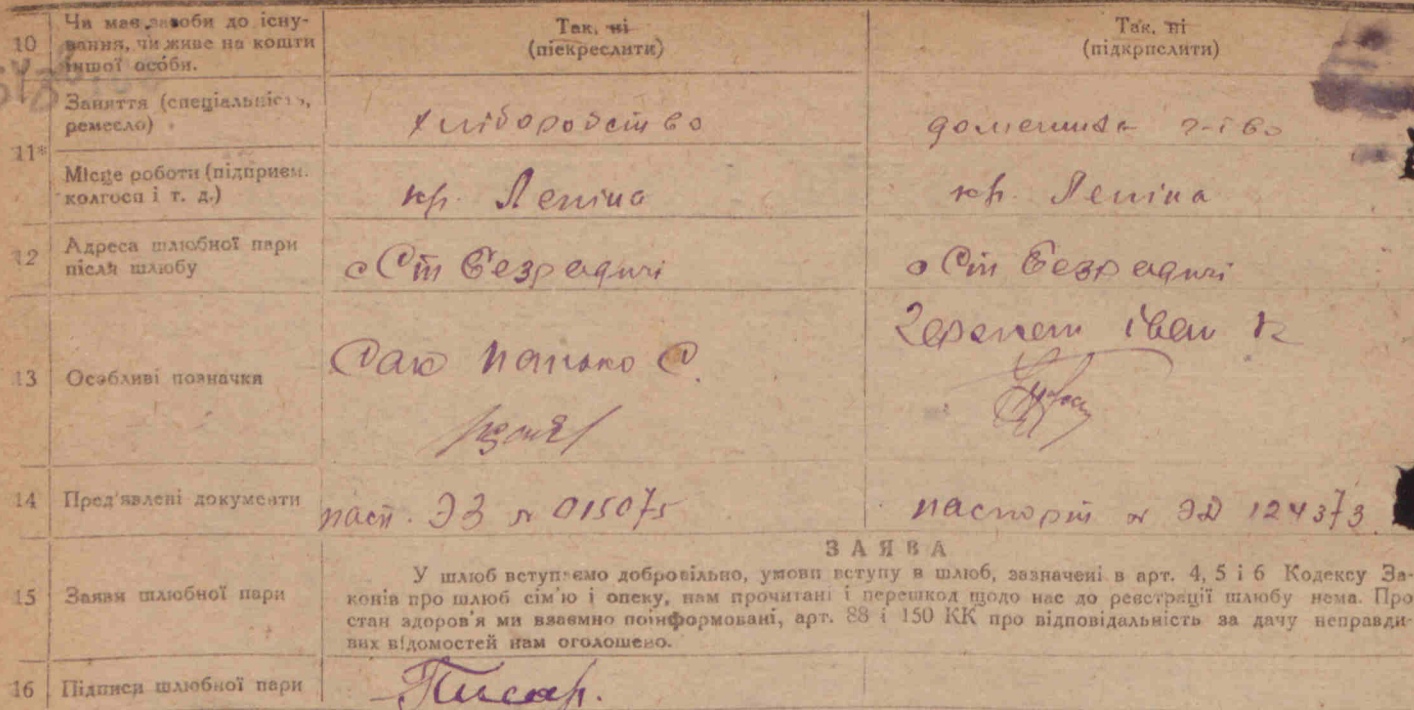 10 Чи має засоби до існу- Так, ні Так, ні
вання, чи живе на кошти (піекреслити) (підкрпслити)
іншої особи.
Заняття (спеціальність, хліборобство домашнє г-тво
ремесло)
11*
Місце роботи (підприєм. кр. Леніна кр. Леніна
колгосп і т. д.)
12 Адреса шлюбної пари с Ст Безрадичі с Ст Безрадичі
після шлюбу
13 Особливі позначки іван
14 Пред'явлені документи пасп. ЭЗ № 015075 паспорт № ЭД 124373
ЗАЯВА
15 Заява шлюбної пари У шлюб вступаємо добровільно, умови вступу в шлюб, зазначені в арт. 4, 5 і 6 Кодексу За-
конів про шлюб сім'ю і опеку, нам прочитані і перешкод щодо нас до реєстрації шлюбу нема. Про
стан здоров'я ми взаємно поінформовані, арт. 88 і 150 КК про відповідальність за дачу неправди-
вих відомостей нам оголошено.
16 Підписи шлюбної пари Писар.